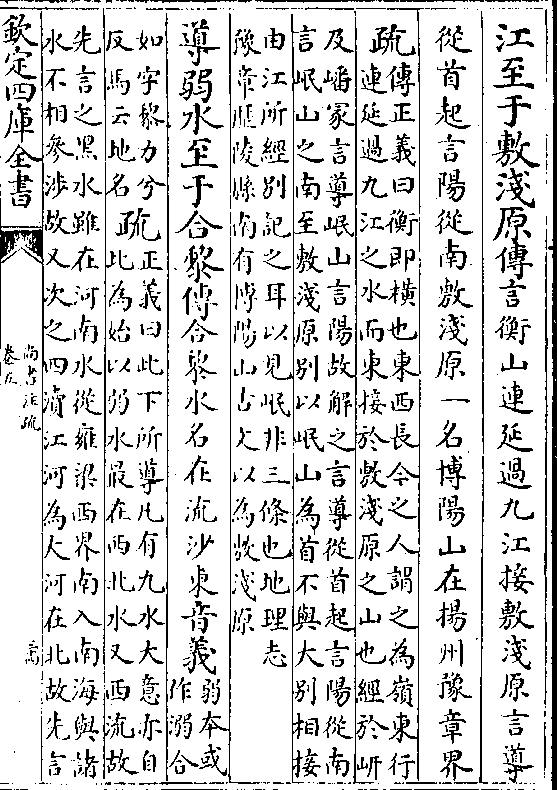 江至于敷淺原傳言衡山連延過九江接敷淺原言導
從首起言陽從南敷淺原一名博陽山在揚州豫章界
疏傳正義曰衡即橫也東西長今之人謂之為嶺東行
連延過九江之水而東接於敷淺原之山也經於岍
及嶓冢言導岷山言陽故解之言導從首起言陽從南
言岷山之南至敷淺原別以岷山為首不與大別相接
由江所經別記之耳以見岷非三條也地理志
豫章歷陵縣南有博陽山古文以為敷淺原
導弱水至于合黎傳合黎水名在流沙東音義弱本或
作溺合
如字黎力兮
反馬云地名
疏正義曰此下所導凡有九水大意亦自
此為始以弱水最在西北水又西流故
先言之黑水雖在河南水從雍梁西界南入南海與諸
水不相參涉故又次之四瀆江河為大河在北故先言
欽定四庫全書
尚書注疏
卷五